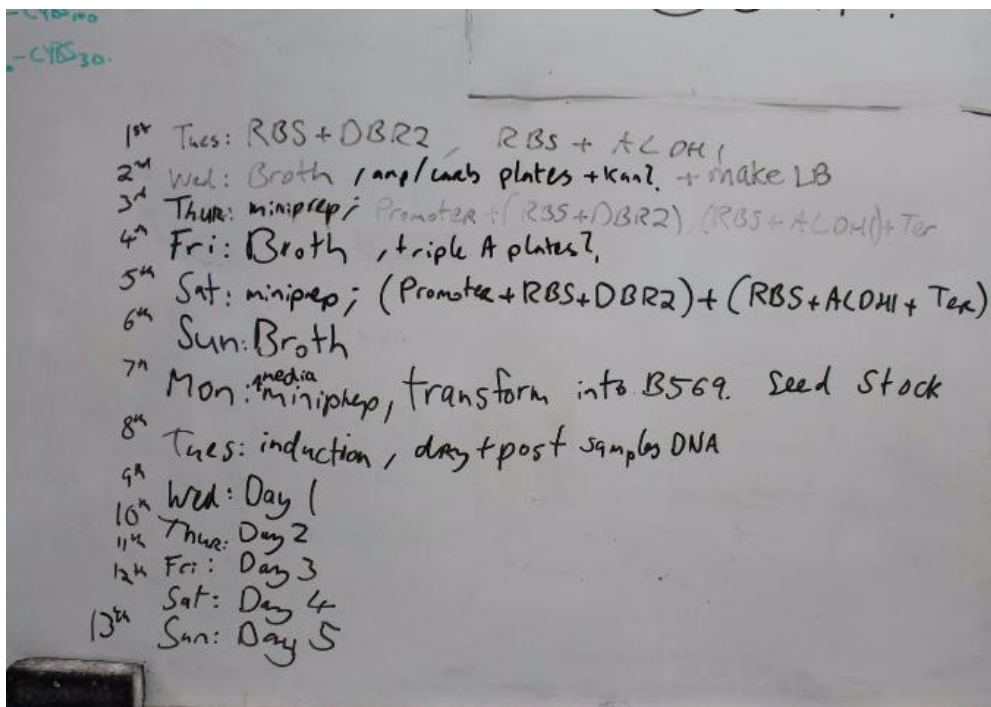 -CYB5100
-CYB530.
1st Tues: RBS + DBR2, RBS + ALDH1
2nd Wed: Broth, amp/carb plates + Kan?. + make LB
3rd Thur: miniprep; Promoter + (RBS+DBR2), (RBS+ALDH1)+Ter
4th Fri: Broth, triple A plates?.
5th Sat: miniprep; (Promoter + RBS + DBR2) + (RBS + ALDH1 + Ter)
6th Sun: Broth
7th Mon: media miniprep, transform into B569. Seed Stock
8th Tues: induction, dry + post samples DNA
9th Wed: Day 1
10th Thur: Day 2
11th Fri: Day 3
12th Sat: Day 4
13th Sun: Day 5